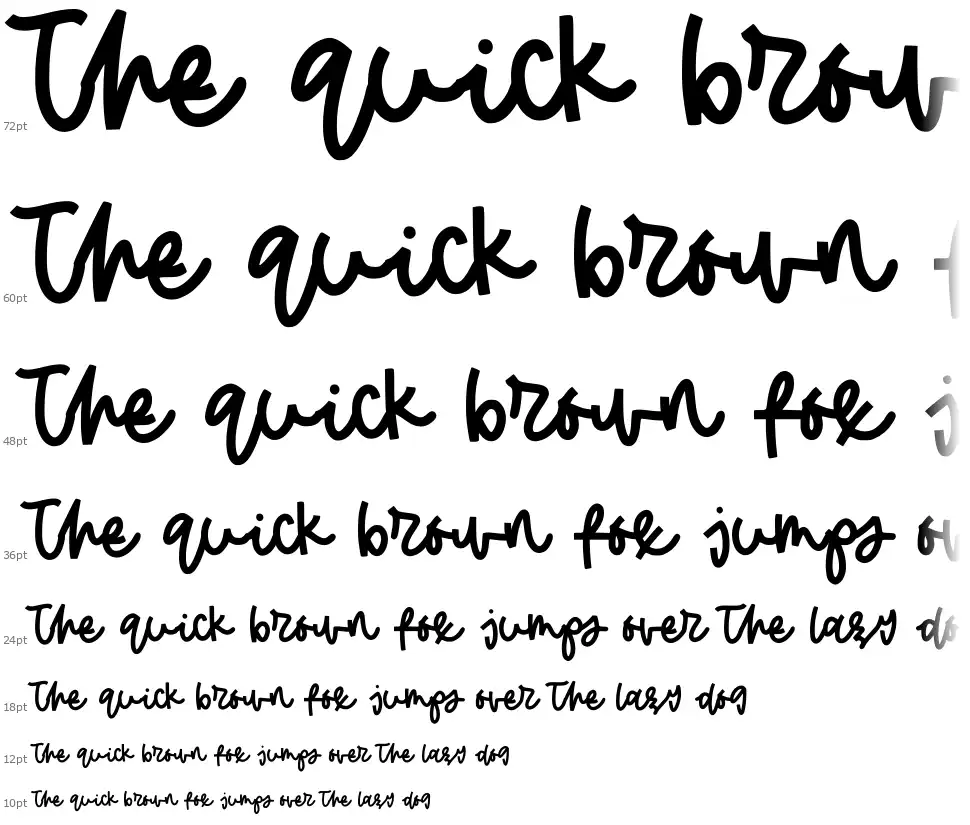 72pt The quick brow
60pt The quick brown
48pt The quick brown fox j
36pt The quick brown fox jumps ov
24pt The quick brown fox jumps over The lazy do
18pt The quick brown fox jumps over The lazy dog
12pt The quick brown fox jumps over The lazy dog
10pt The quick brown fox jumps over The lazy dog